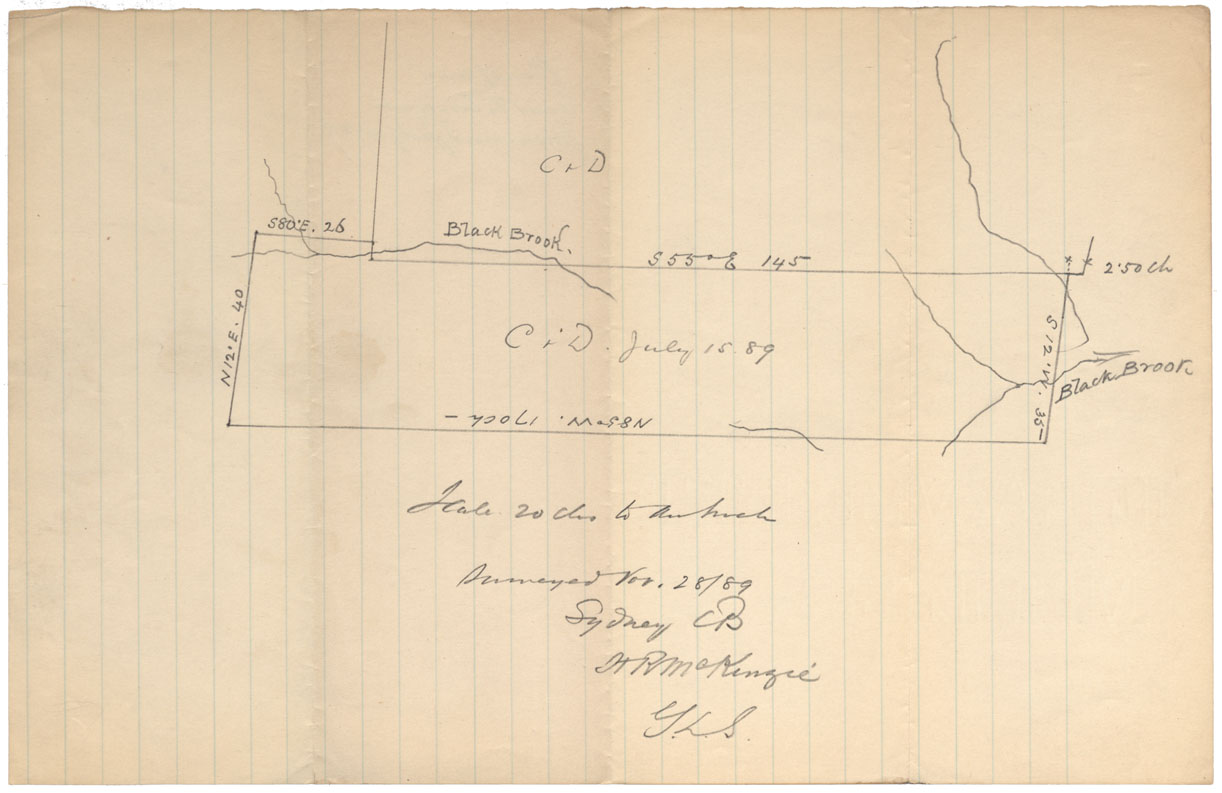 C & D
S80°E. 26
Black Brook.
S55°E 145
2.50 ch
N12°E. 40
C & D. July 15 89
S 12°W. 35
Black Brook
N85°W. 170 ch. –
Scale 20 chs to an inch
Surveyed Nov. 28/89
Sydney CB
H R McKenzie
L.S.